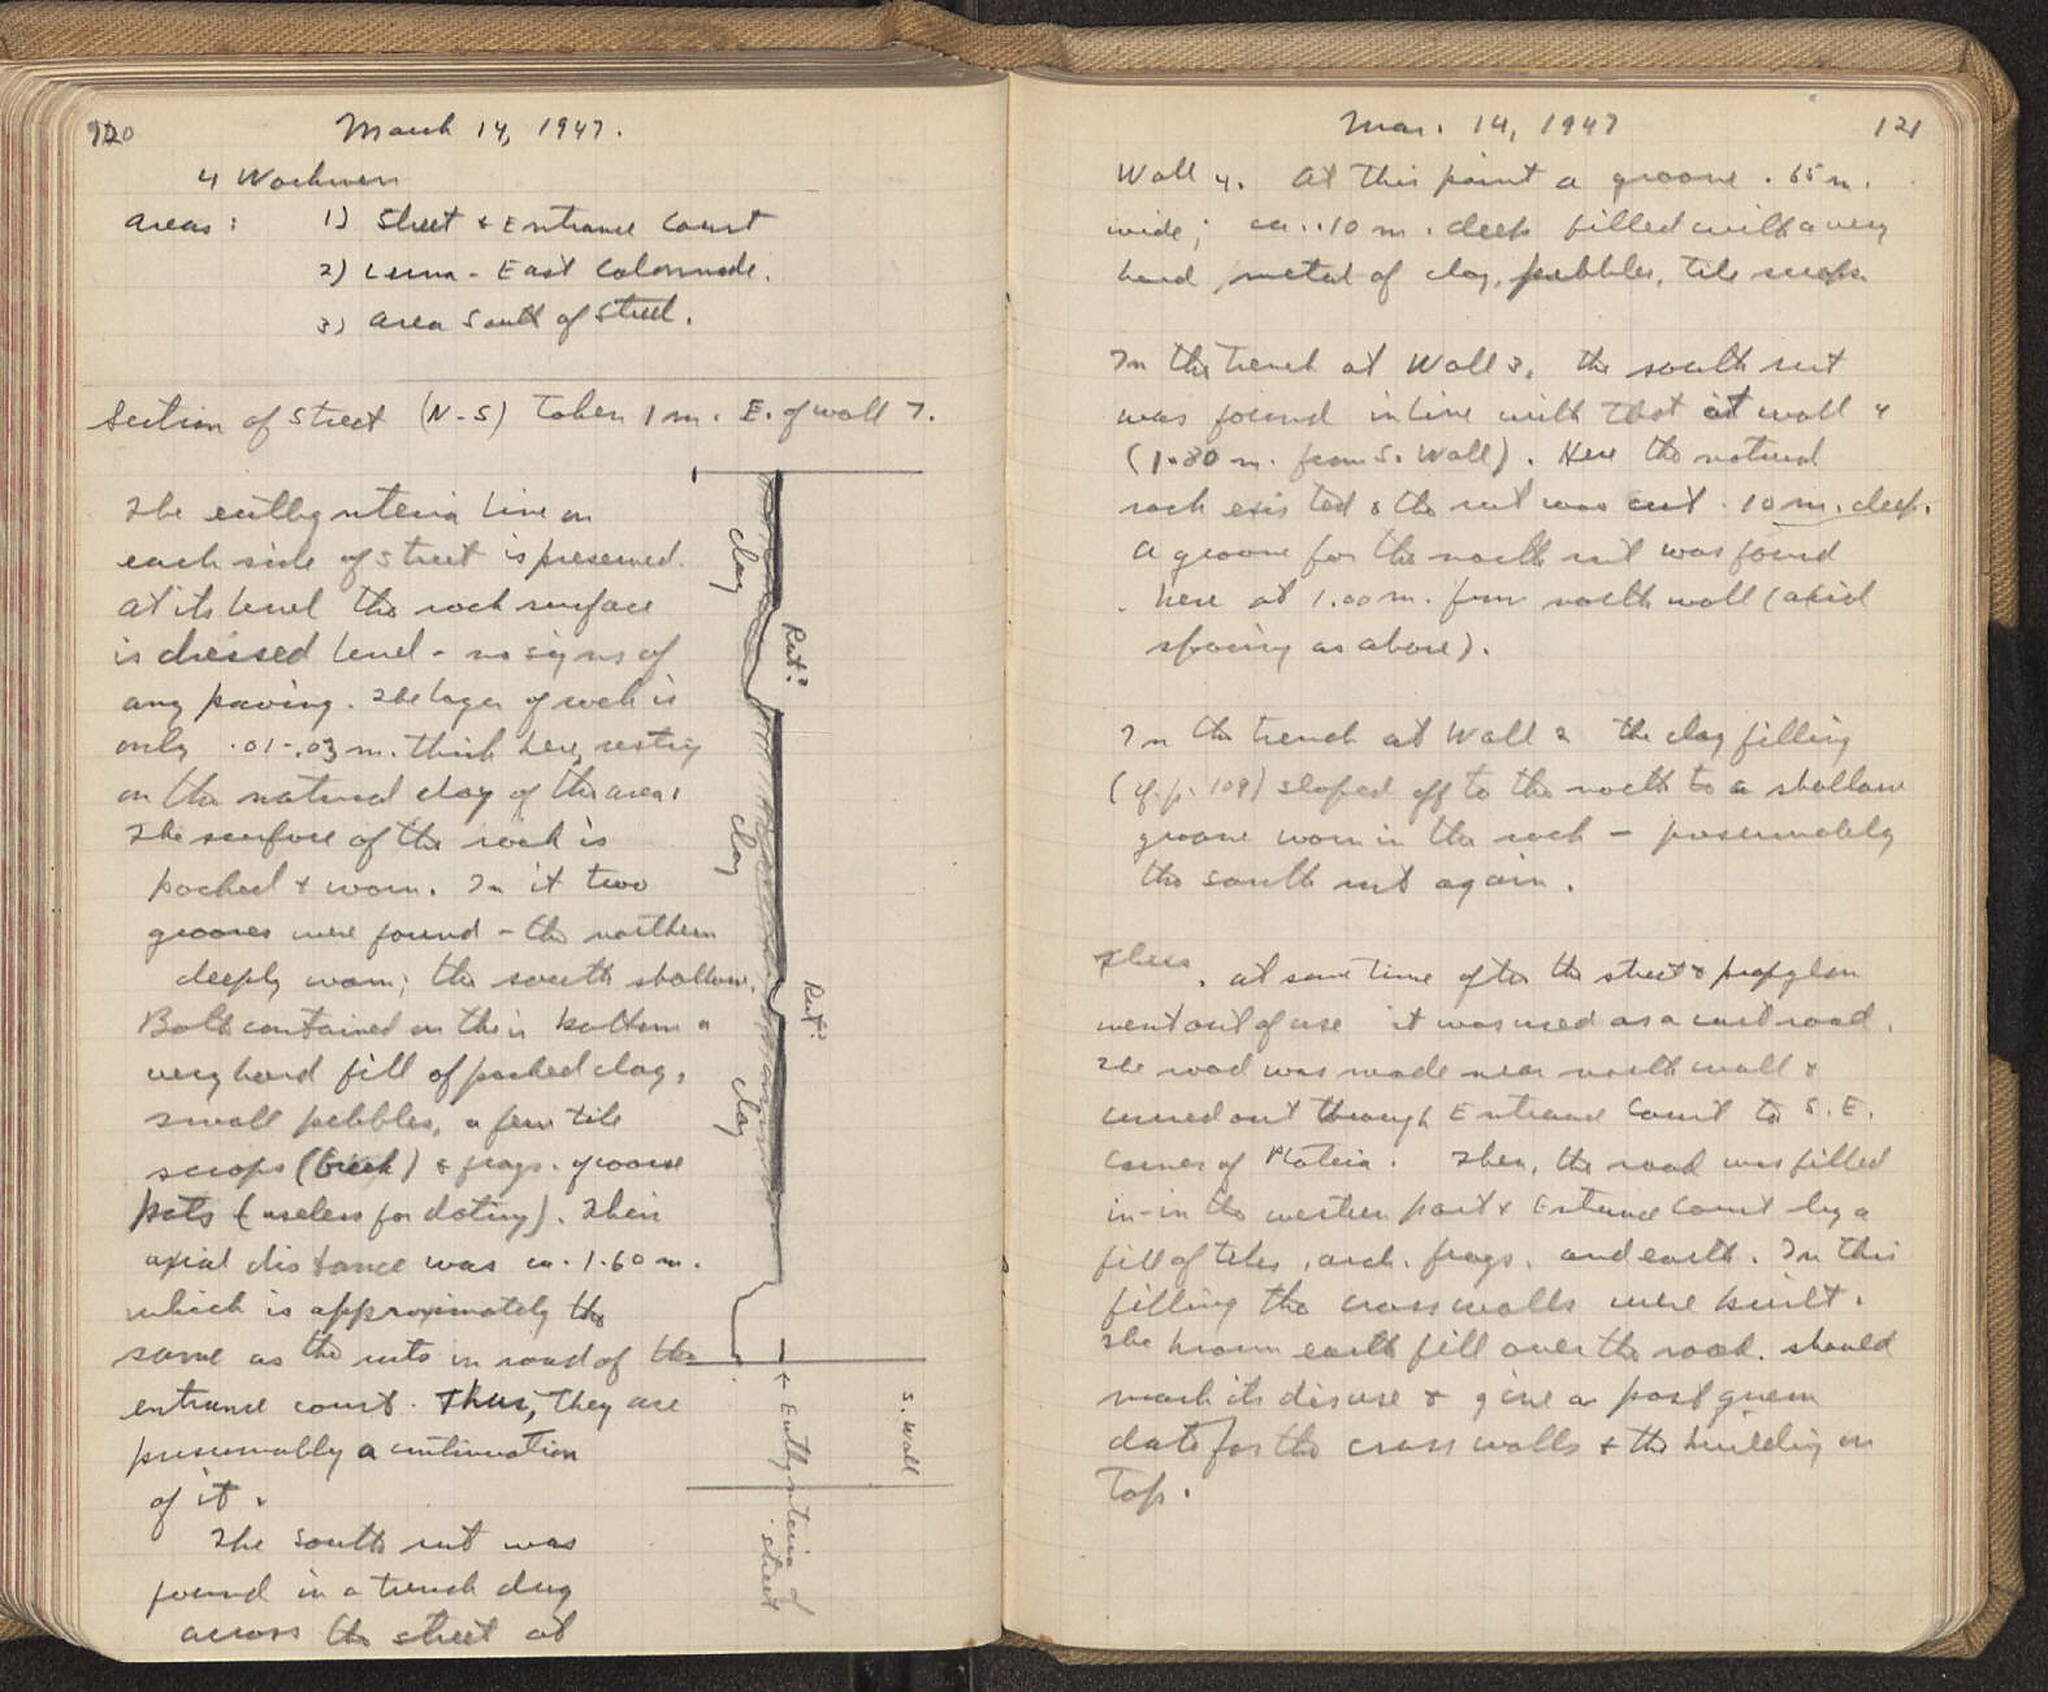 120
March 14, 1947.
4 Workmen
Areas: 1) Street & Entrance Court
2) Lerna - East Colonnade.
3) Area South of Street.
Section of Street (N-S) Taken 1 m. E. of wall 7.
The euthynteria line on
each side of street is preserved.
At its level the rock surface
is dressed level - no signs of
any paving. The layer of rock is
only .01-.03 m. thick here, resting
on the natural clay of the area.
The surface of the rock is
pocked & worn. In it two
grooves were found - the northern
deeply worn; the south shallow.
Both contained on their bottom a
very hard fill of packed clay,
small pebbles, a few tile
scraps (Greek) & frags. of coarse
pots (useless for dating). Their
axial distance was ca. 1.60 m.
which is approximately the
same as the ruts in road of the
entrance court. Thus, they are
presumably a continuation
of it.
The South rut was
found in a trench dug
across the street at
clay
Rut?
clay
Rut?
clay
S. Wall
← Euthynteria of
street
Mar. 14, 1947
121
Wall 4. At this point a groove .65 m.
wide; ca. .10 m. deep filled with a very
hard metal of clay, pebbles, tile scraps.
In the trench at Wall 3, the south rut
was found in line with that at wall 4
(1.80 m. from S. Wall). Here the natural
rock existed & the rut was cut .10 m. deep.
A groove for the north rut was found
here at 1.00 m. from north wall (axial
spacing as above).
In the trench at Wall 2 the clay filling
(cf. p. 109) sloped off to the north to a shallow
groove worn in the rock - presumably
the south rut again.
Thus, at some time after the street & propylon
went out of use it was used as a cart road.
The road was made near north wall &
curved out through Entrance Court to S.E.
corner of Plateia. Then, the road was filled
in - in the western part & Entrance Court by a
fill of tiles, arch. frags. and earth. In this
filling the cross walls were built.
The brown earth fill over the road should
mark its disuse & give a post quem
date for the cross walls & the building on
Top.